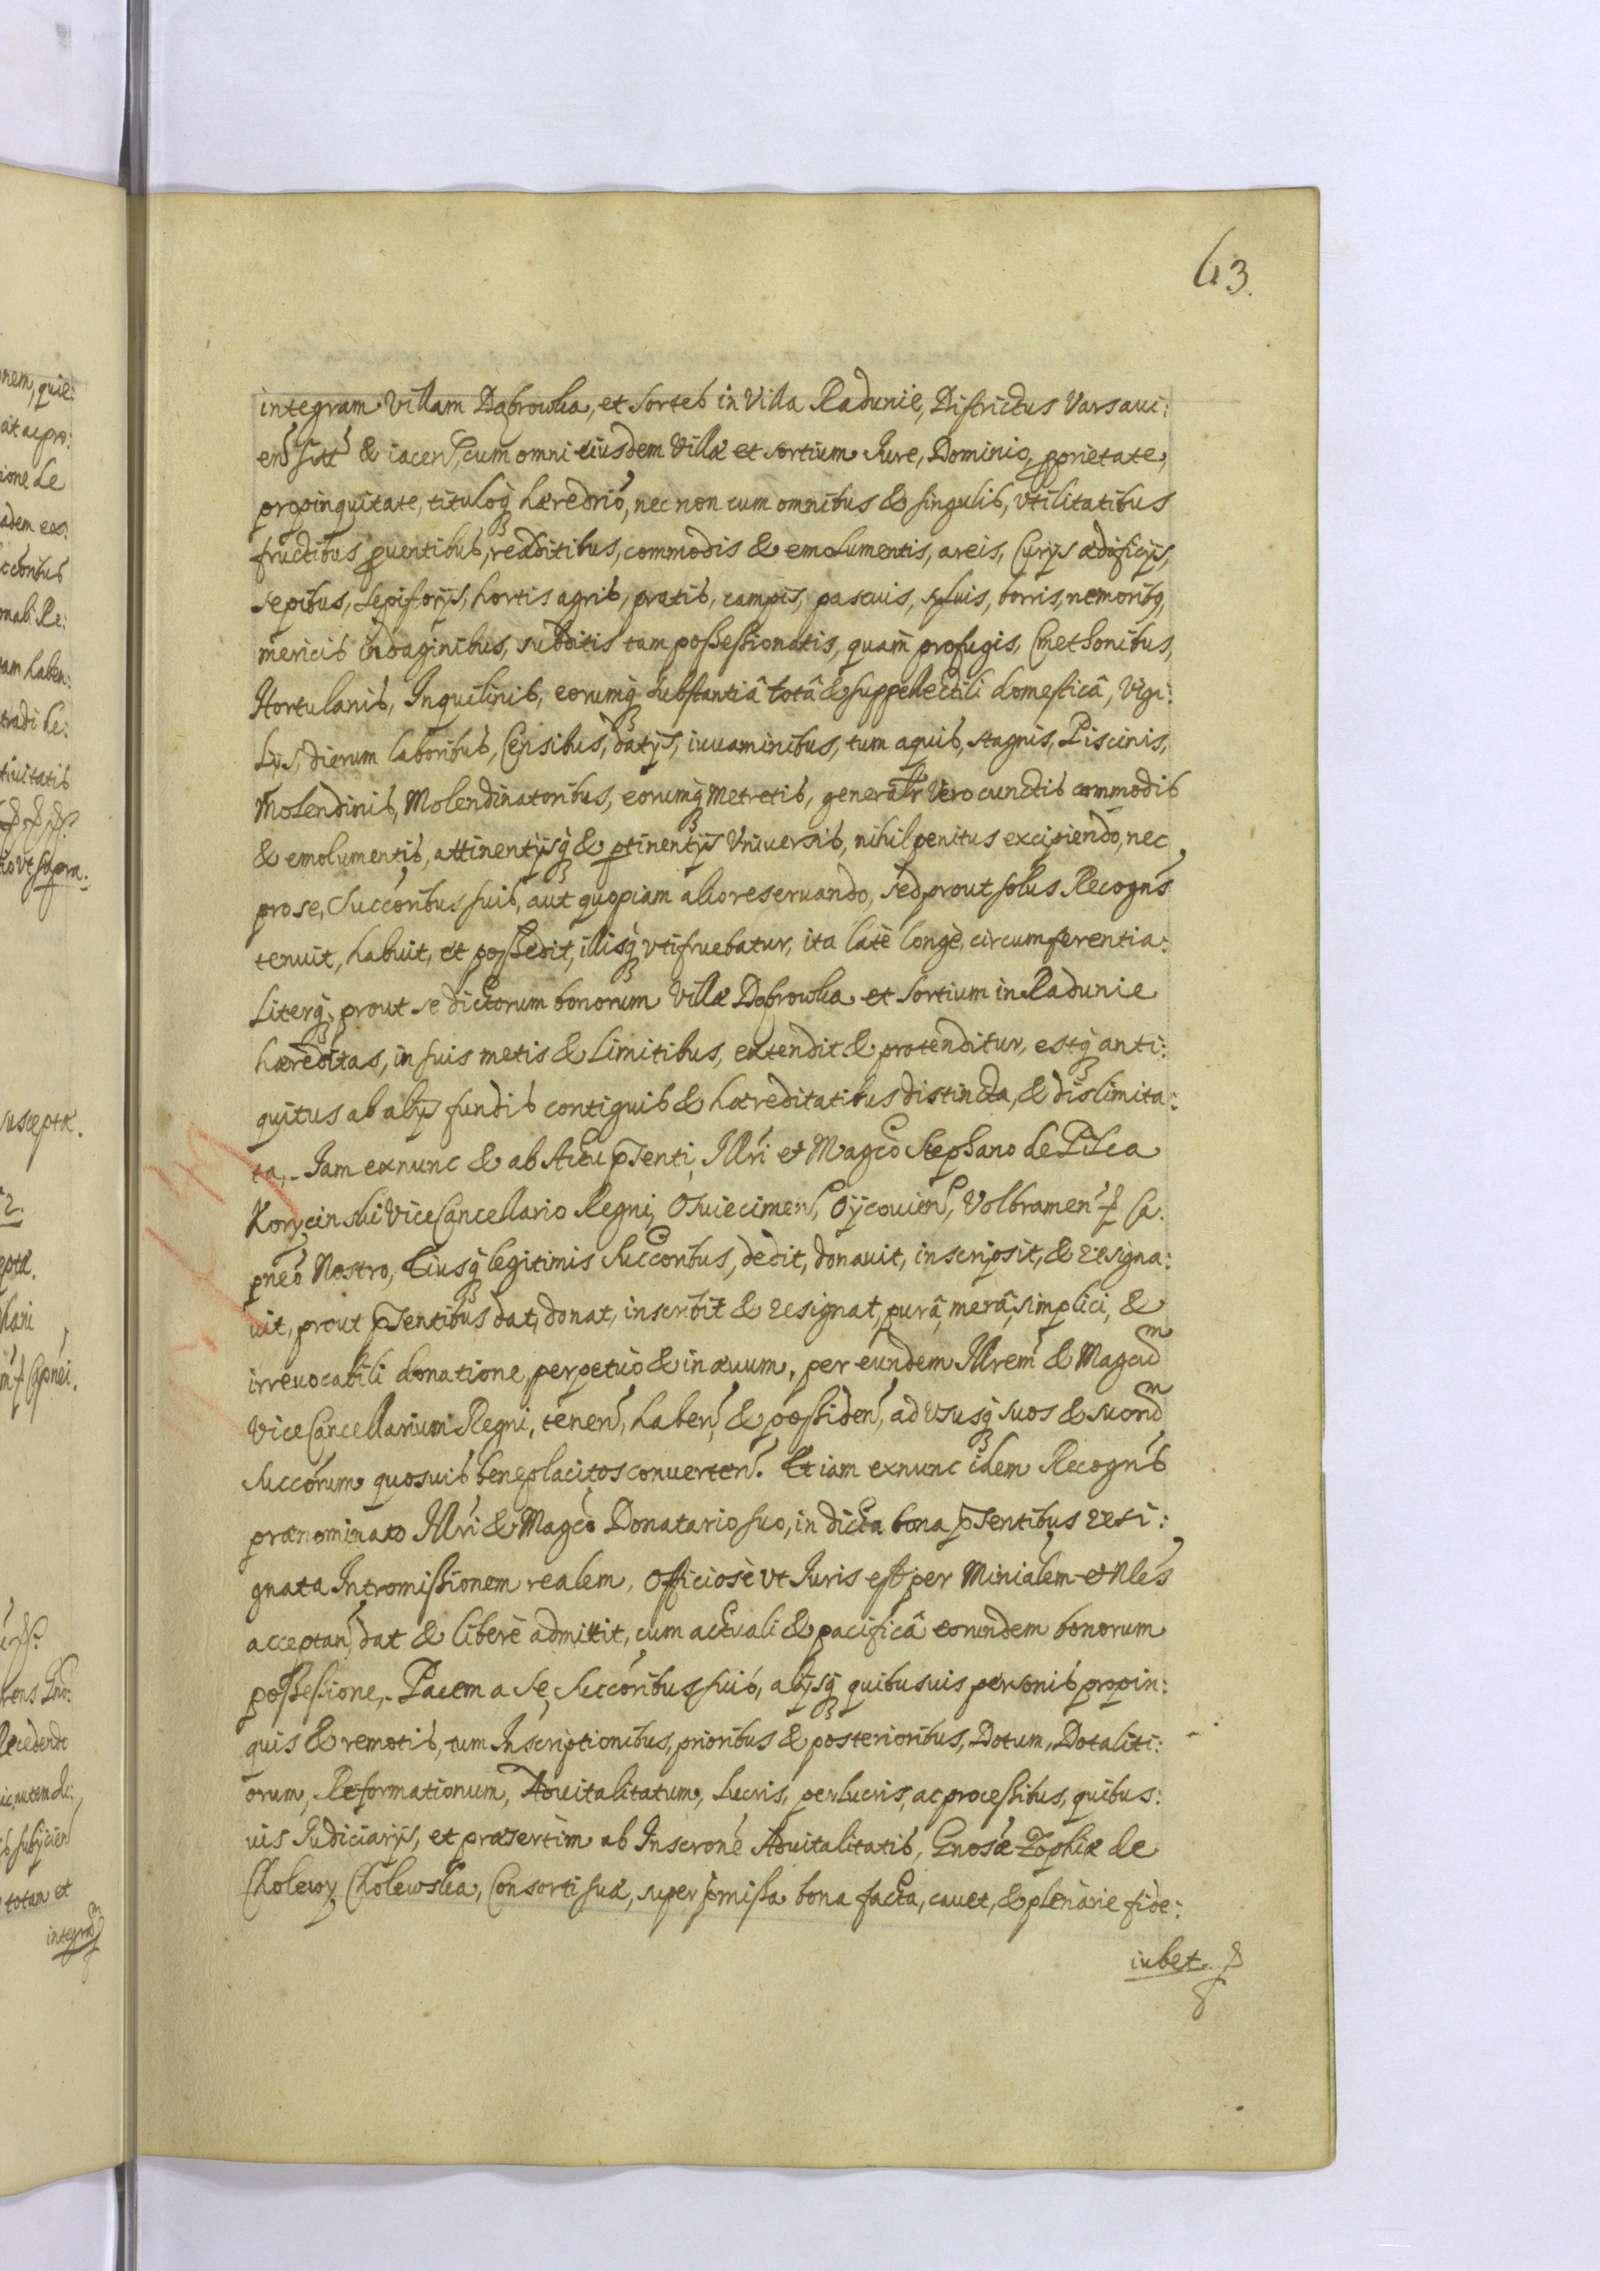 63.
integram Villam Dąbrowka, et sortes in Villa Radunie, Districtus Varsaui:
en sitt & iacen, cum omni eiusdem Villæ et sortium Iure, Dominio, pprietate,
propinquitate, tituloq hæredrio, nec non cum omnibus & singulis, vtilitatibus
fructibus puentibus, redditibus, commodis & emolumentis, areis, Curijs ædificijs,
sepibus, sepisorijs, hortis agris, pratis, campis, pascuis, syluis, borris, nemoribq,
mericis indaginibus, subditis tam possessionatis, quam profugis, Cmethonibus,
Hortulanis, Inquilinis, eorumq substantiâ totâ & suppellectili domesticâ, Vigi:
lijs, dierum laboribus, Censibus, datijs, iuuaminibus, tum aquis, stagnis, Piscinis,
Molendinis, Molendinatoribus, eorumq Metretis, generalr Vero cunctis commodis
& emolumentis, attinentijsq & ptinentijs Vniuersis, nihil penitus excipiendo, nec
pro se, Succoribus suis, aut quopiam alio reseruando, sed prout solus Recogns
tenuit, habuit, et possedit, illisq vtifruebatur, ita latè longè, circumferentia:
literq, prout se dictorum bonorum Villæ Dąbrowka et sortium in Radunie
hæreditas, in suis metis & limitibus, extendit & protenditur, estq anti:
quitus ab alijs fundis contiguis & hæreditatibus distincta, & dislimita:
ta, Iam exnunc & ab Actu psenti, Illri et Magco Stephano de Pilca
Korycinski ViceCancellario Regni, Osuiecimen, Oÿcouien, Volbramen Ca:
pneo Nostro, Eiusq legitimis Succoribus, dedit, donauit, inscripsit, & resigna:
uit, prout psentibus dat, donat, inscribit & resignat, purâ, merâ, simplici, &
irreuocabili donatione, perpetuò & in æuum, per eundem Illrem & Magcum
ViceCancellarium Regni, tenen, haben, & possiden, ad vsusq suos & suorum
Succorum quosuis beneplacitos conuerten. Et iam exnunc idem Recogns
prænominato Illri & Magco Donatario suo, in dicta bona psentibus resi:
gnata Intromissionem realem, Officiosè vt Iuris est per Minialem et Nles
acceptan, dat & liberè admittit, cum actuali & pacificâ eorundem bonorum
possessione, Pacem a se, Succoribus suis, alijsq quibusuis personis propin:
quis & remotis, tum Inscriptionibus, prioribus & posterioribus, Dotum, Dotaliti:
orum, Reformationum, Aduitalitatum, lucris, perlucris, ac processibus, quibus:
uis Iudiciarijs, et præsertim ab Inscrone Aduitalitatis, Gnosæ Zophiæ de
Cholewy Cholewska, Consorti suæ, super pmissa bona facta, cauet, & plenarie fide:
iubet.